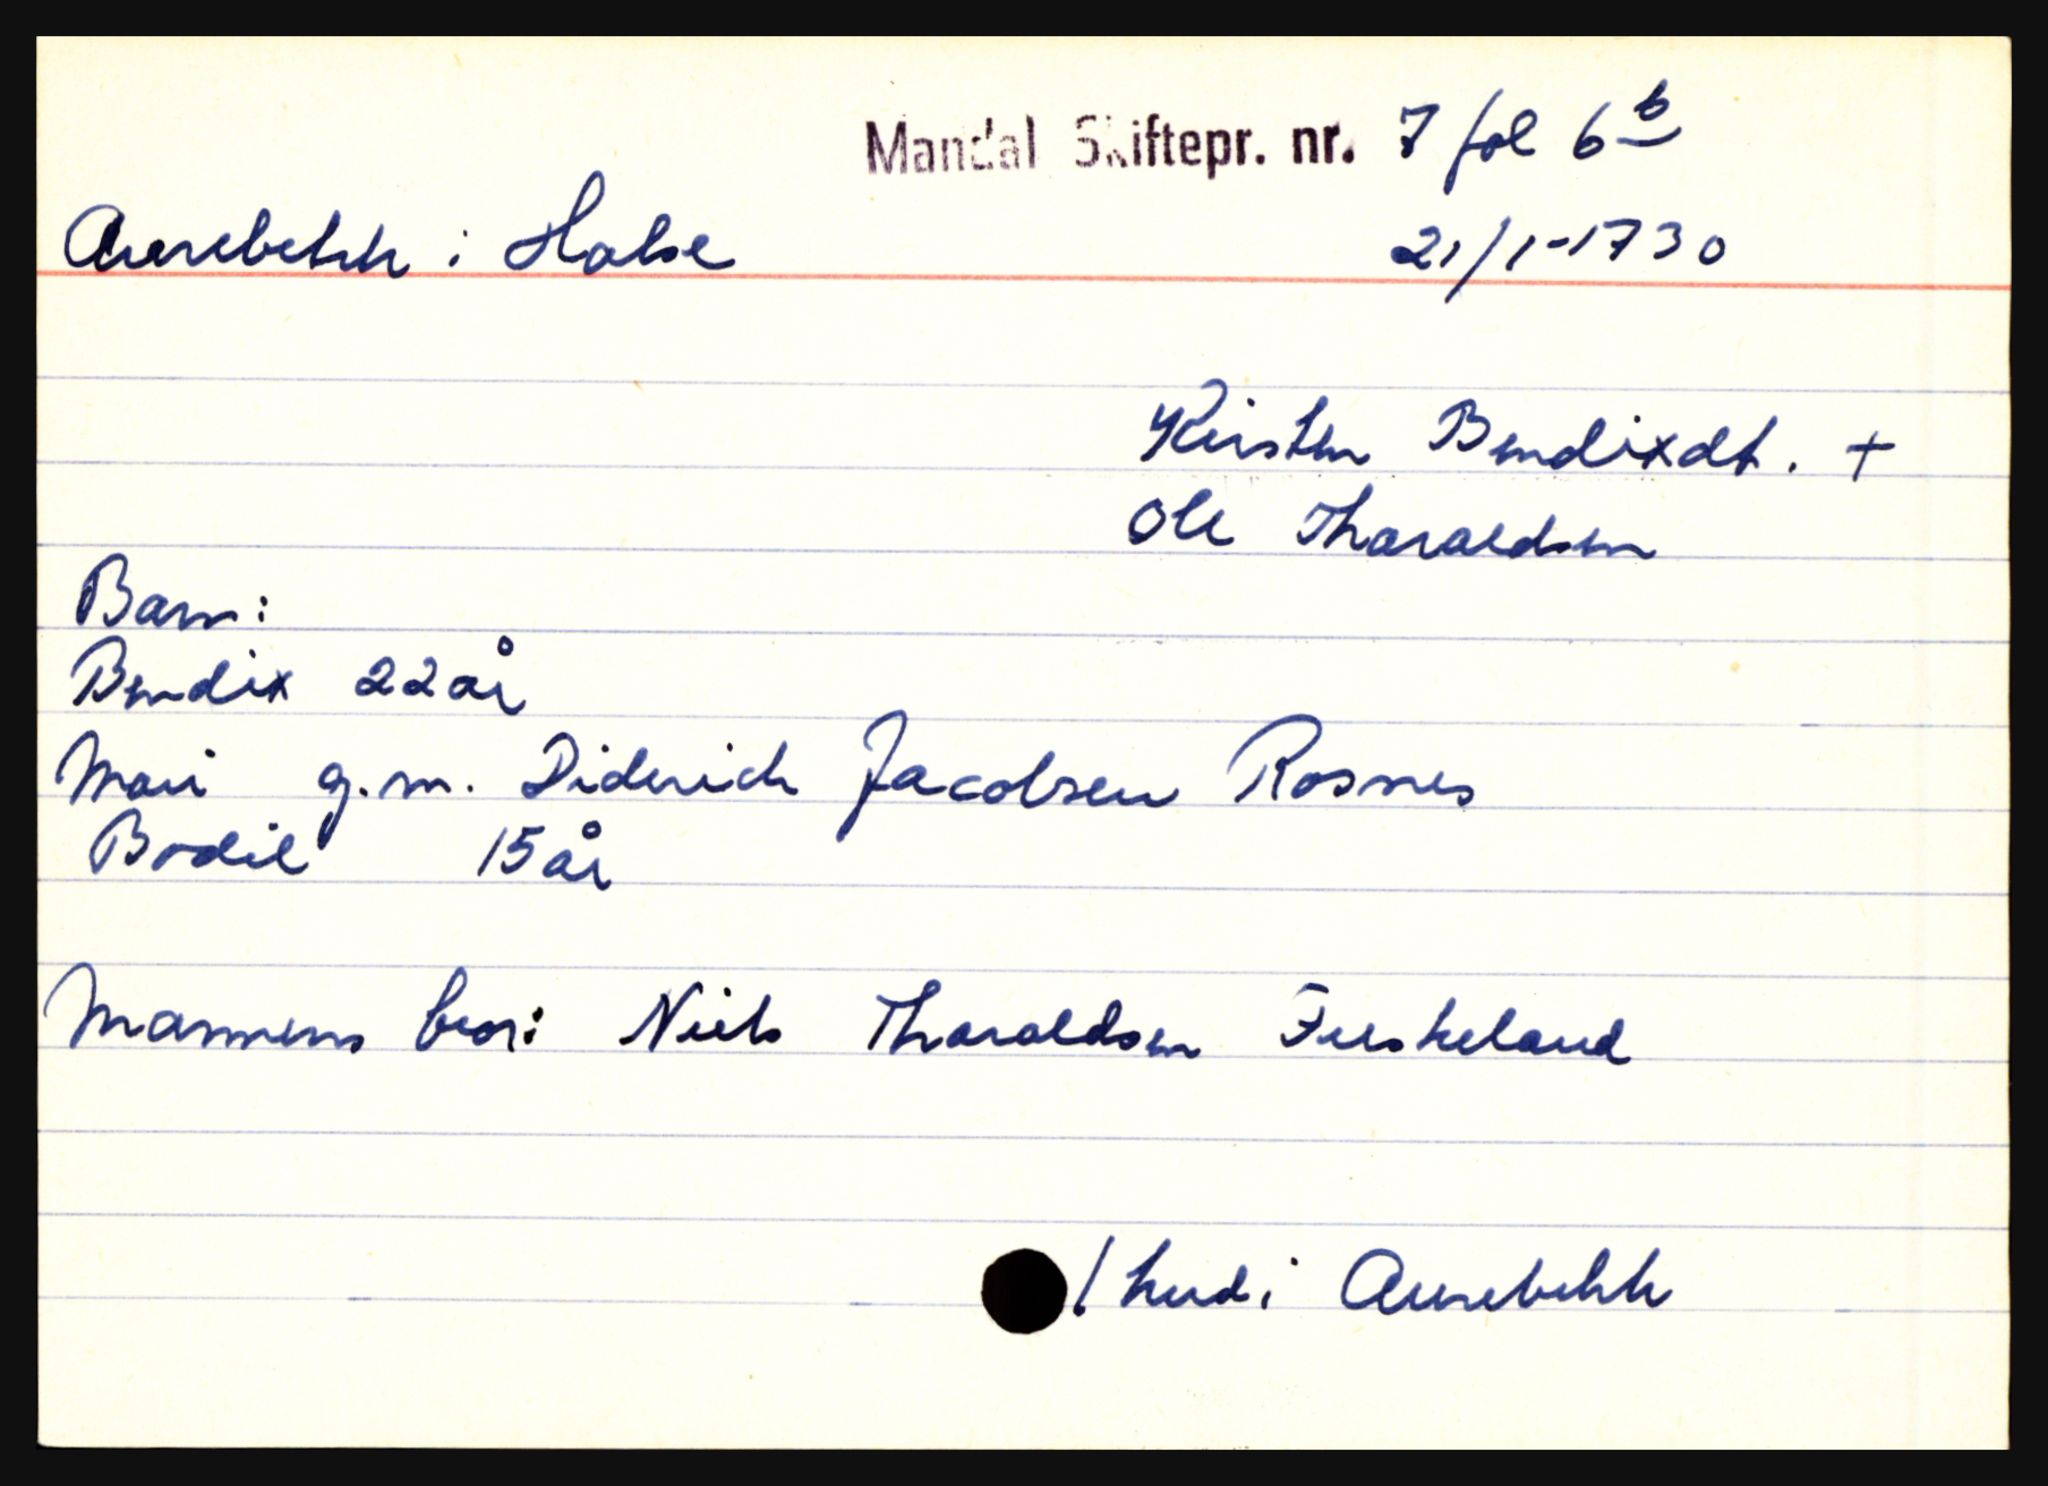 Mandal Skiftepr. nr. 7 fol 6b
Aurebekk i Halse 21/1-1730
Kirsten Bendixdt. +
Ole Tharaldsen
Barn:
Bendix 22 år
Mari g.m. Diderich Jacobsen Rosnes
Bodil 15 år
Mannens bror: Niels Tharaldsen Fuskeland
/ Aurebekk